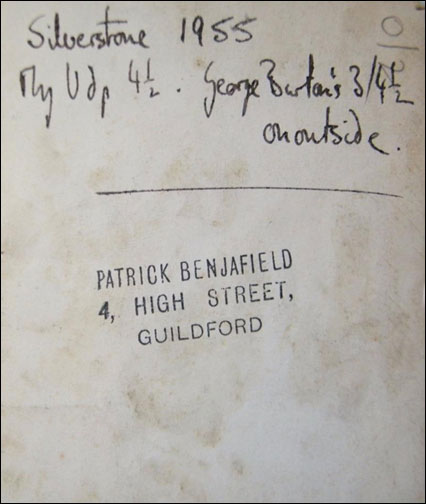 Silverstone 1955
My Vdp 4½. George Burton's 3/4½
on outside.
PATRICK BENJAFIELD
4, HIGH STREET,
GUILDFORD